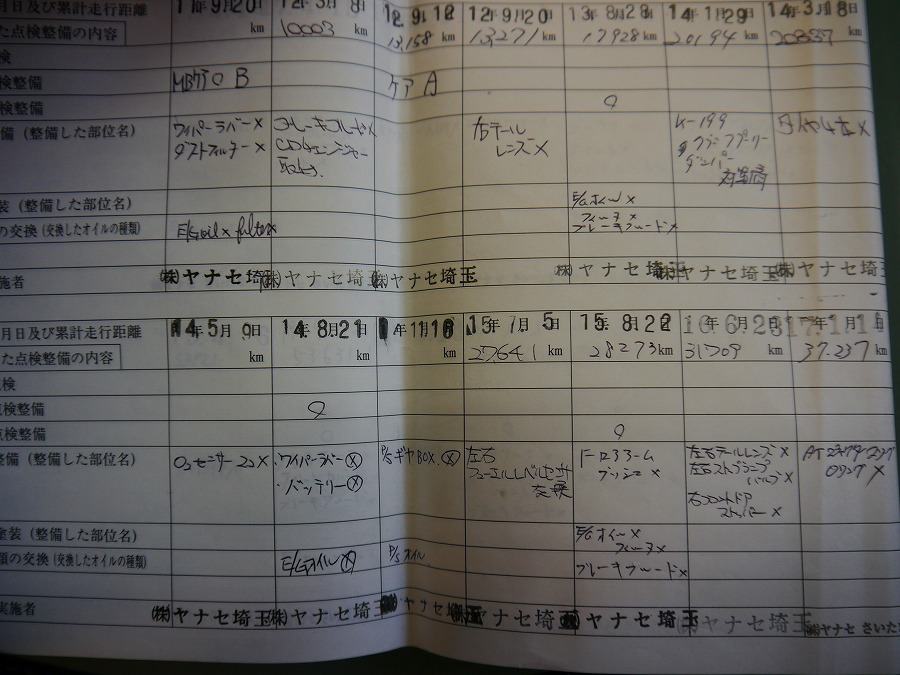 月日及び累計走行距離 11年9月20日 12年3月8日 12.9.12 12年9月20日 13年8月28日 14年1月29日 14年3月18日
た点検整備の内容 km 10003 km 13,158 km 13,271 km 17928 km 20194 km 20837 km
検
検整備 MBケア B ケア A
検整備
備(整備した部位名) ワイパーラバー× CDチェンジャー 右テール K-199
ダストフィルター× 取付 レンズ× ダンパー
装(整備した部位名) E/Gオイル×
の交換(交換したオイルの種類) E/Goil× filter× ブレーキフルード×
施者 (株)ヤナセ埼 (株)ヤナセ埼玉 (株)ヤナセ埼玉 (株)ヤナセ埼玉 (株)ヤナセ埼玉 (株)ヤナセ埼玉
月日及び累計走行距離 14年5月 日 14年8月21日 年11月16日 15年7月5日 15年8月22日 年6月2 年1月1
た点検整備の内容 km km km 27,641 km 28273 km 31709 km 37.237 km
検
点検整備
点検整備
整備(整備した部位名) O₂センサー 2コ× ・ワイパーラバー× P/SギヤBOX.× 左右 左右テールレンズ×
・バッテリー× フューエルレベルセンサ ブッシュ× 左右ストップランプ
交換 バルブ×
右フロントドア
ストッパー×
塗装(整備した部位名) E/Gオイル×
類の交換(交換したオイルの種類) E/Gオイル× P/Sオイル ブレーキフルード×
実施者 (株)ヤナセ埼玉 (株)ヤナセ埼玉 ヤナセ埼玉 ヤナセ埼玉 ヤナセ埼玉 (株)ヤナセ埼玉 (株)ヤナセ さいた